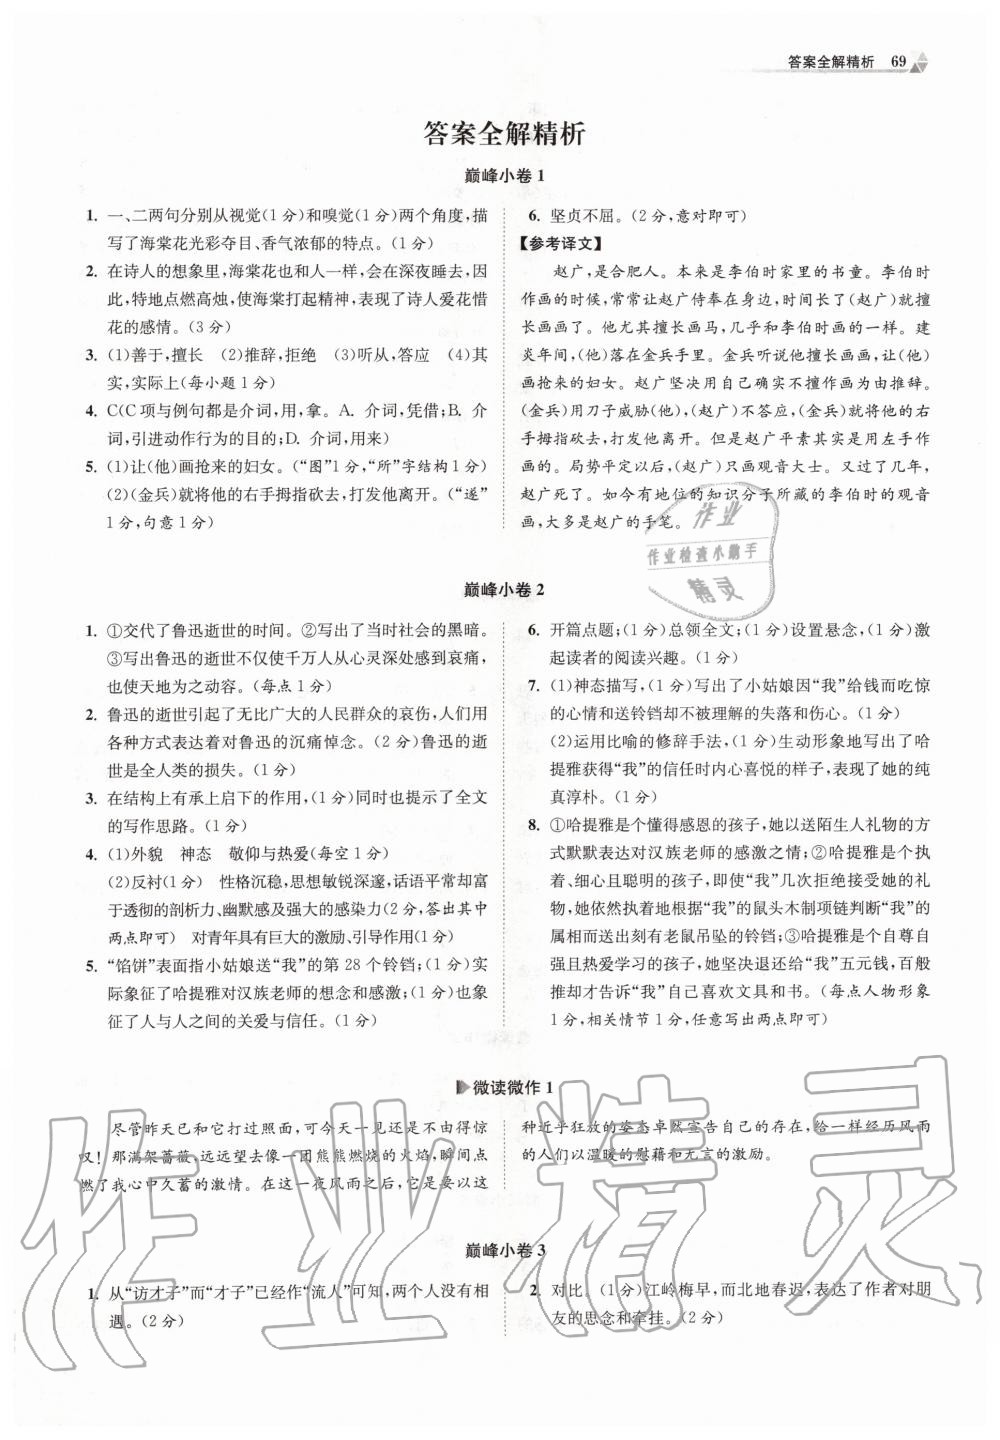 答案全解精析 69
答案全解精析
巅峰小卷 1
1. 一、二两句分别从视觉(1 分)和嗅觉(1 分)两个角度,描
写了海棠花光彩夺目、香气浓郁的特点。(1 分)
2. 在诗人的想象里,海棠花也和人一样,会在深夜睡去,因
此,特地点燃高烛,使海棠打起精神,表现了诗人爱花惜
花的感情。(3 分)
3. (1)善于,擅长 (2)推辞,拒绝 (3)听从,答应 (4)其
实,实际上(每小题 1 分)
4. C(C 项与例句都是介词,用,拿。A. 介词,凭借;B. 介
词,引进动作行为的目的;D. 介词,用来)
5. (1)让(他)画抢来的妇女。(“图”1 分,“所”字结构 1 分)
(2)(金兵)就将他的右手拇指砍去,打发他离开。(“遂”
1 分,句意 1 分)
6. 坚贞不屈。(2 分,意对即可)
【参考译文】
赵广,是合肥人。本来是李伯时家里的书童。李伯时
作画的时候,常常让赵广侍奉在身边,时间长了(赵广)就擅
长画画了。他尤其擅长画马,几乎和李伯时画的一样。建
炎年间,(他)落在金兵手里。金兵听说他擅长画画,让(他)
画抢来的妇女。赵广坚决用自己确实不擅作画为由推辞。
(金兵)用刀子威胁(他),(赵广)不答应,(金兵)就将他的右
手拇指砍去,打发他离开。但是赵广平素其实是用左手作
画的。局势平定以后,(赵广)只画观音大士。又过了几年,
赵广死了。如今有地位的知识分子所藏的李伯时的观音
画,大多是赵广的手笔。
作业
作业检查小助手
精灵
巅峰小卷 2
1. ①交代了鲁迅逝世的时间。②写出了当时社会的黑暗。
③写出鲁迅的逝世不仅使千万人从心灵深处感到哀痛,
也使天地为之动容。(每点 1 分)
2. 鲁迅的逝世引起了无比广大的人民群众的哀伤,人们用
各种方式表达着对鲁迅的沉痛悼念。(2 分)鲁迅的逝
世是全人类的损失。(1 分)
3. 在结构上有承上启下的作用,(1 分)同时也提示了全文
的写作思路。(1 分)
4. (1)外貌 神态 敬仰与热爱(每空 1 分)
(2)反衬(1 分) 性格沉稳,思想敏锐深邃,话语平常却富
于透彻的剖析力、幽默感及强大的感染力(2 分,答出其中
两点即可) 对青年具有巨大的激励、引导作用(1 分)
5. “馅饼”表面指小姑娘送“我”的第 28 个铃铛;(1 分)实
际象征了哈提雅对汉族老师的想念和感激;(1 分)也象
征了人与人之间的关爱与信任。(1 分)
6. 开篇点题;(1 分)总领全文;(1 分)设置悬念,(1 分)激
起读者的阅读兴趣。(1 分)
7. (1)神态描写,(1 分)写出了小姑娘因“我”给钱而吃惊
的心情和送铃铛却不被理解的失落和伤心。(1 分)
(2)运用比喻的修辞手法,(1 分)生动形象地写出了哈
提雅获得“我”的信任时内心喜悦的样子,表现了她的纯
真淳朴。(1 分)
8. ①哈提雅是个懂得感恩的孩子,她以送陌生人礼物的方
式默默表达对汉族老师的感激之情;②哈提雅是个执
着、细心且聪明的孩子,即使“我”几次拒绝接受她的礼
物,她依然执着地根据“我”的鼠头木制项链判断“我”的
属相而送出刻有老鼠吊坠的铃铛;③哈提雅是个自尊自
强且热爱学习的孩子,她坚决退还给“我”五元钱,百般
推却才告诉“我”自己喜欢文具和书。(每点人物形象
1 分,相关情节 1 分,任意写出两点即可)
微读微作 1
尽管昨天已和它打过照面,可今天一见还是不由得惊
叹！那满架蔷薇,远远望去像一团熊熊燃烧的火焰,瞬间点
燃了我心中久蓄的激情。在这一夜风雨之后,它是要以这
种近乎狂放的姿态卓然宣告自己的存在,给一样经历风雨
的人们以温暖的慰藉和无言的激励。
巅峰小卷 3
1. 从“访才子”而“才子”已经作“流人”可知,两个人没有相
遇。(2 分)
2. 对比。(1 分)江岭梅早,而北地春迟,表达了作者对朋
友的思念和牵挂。(2 分)
作业精灵